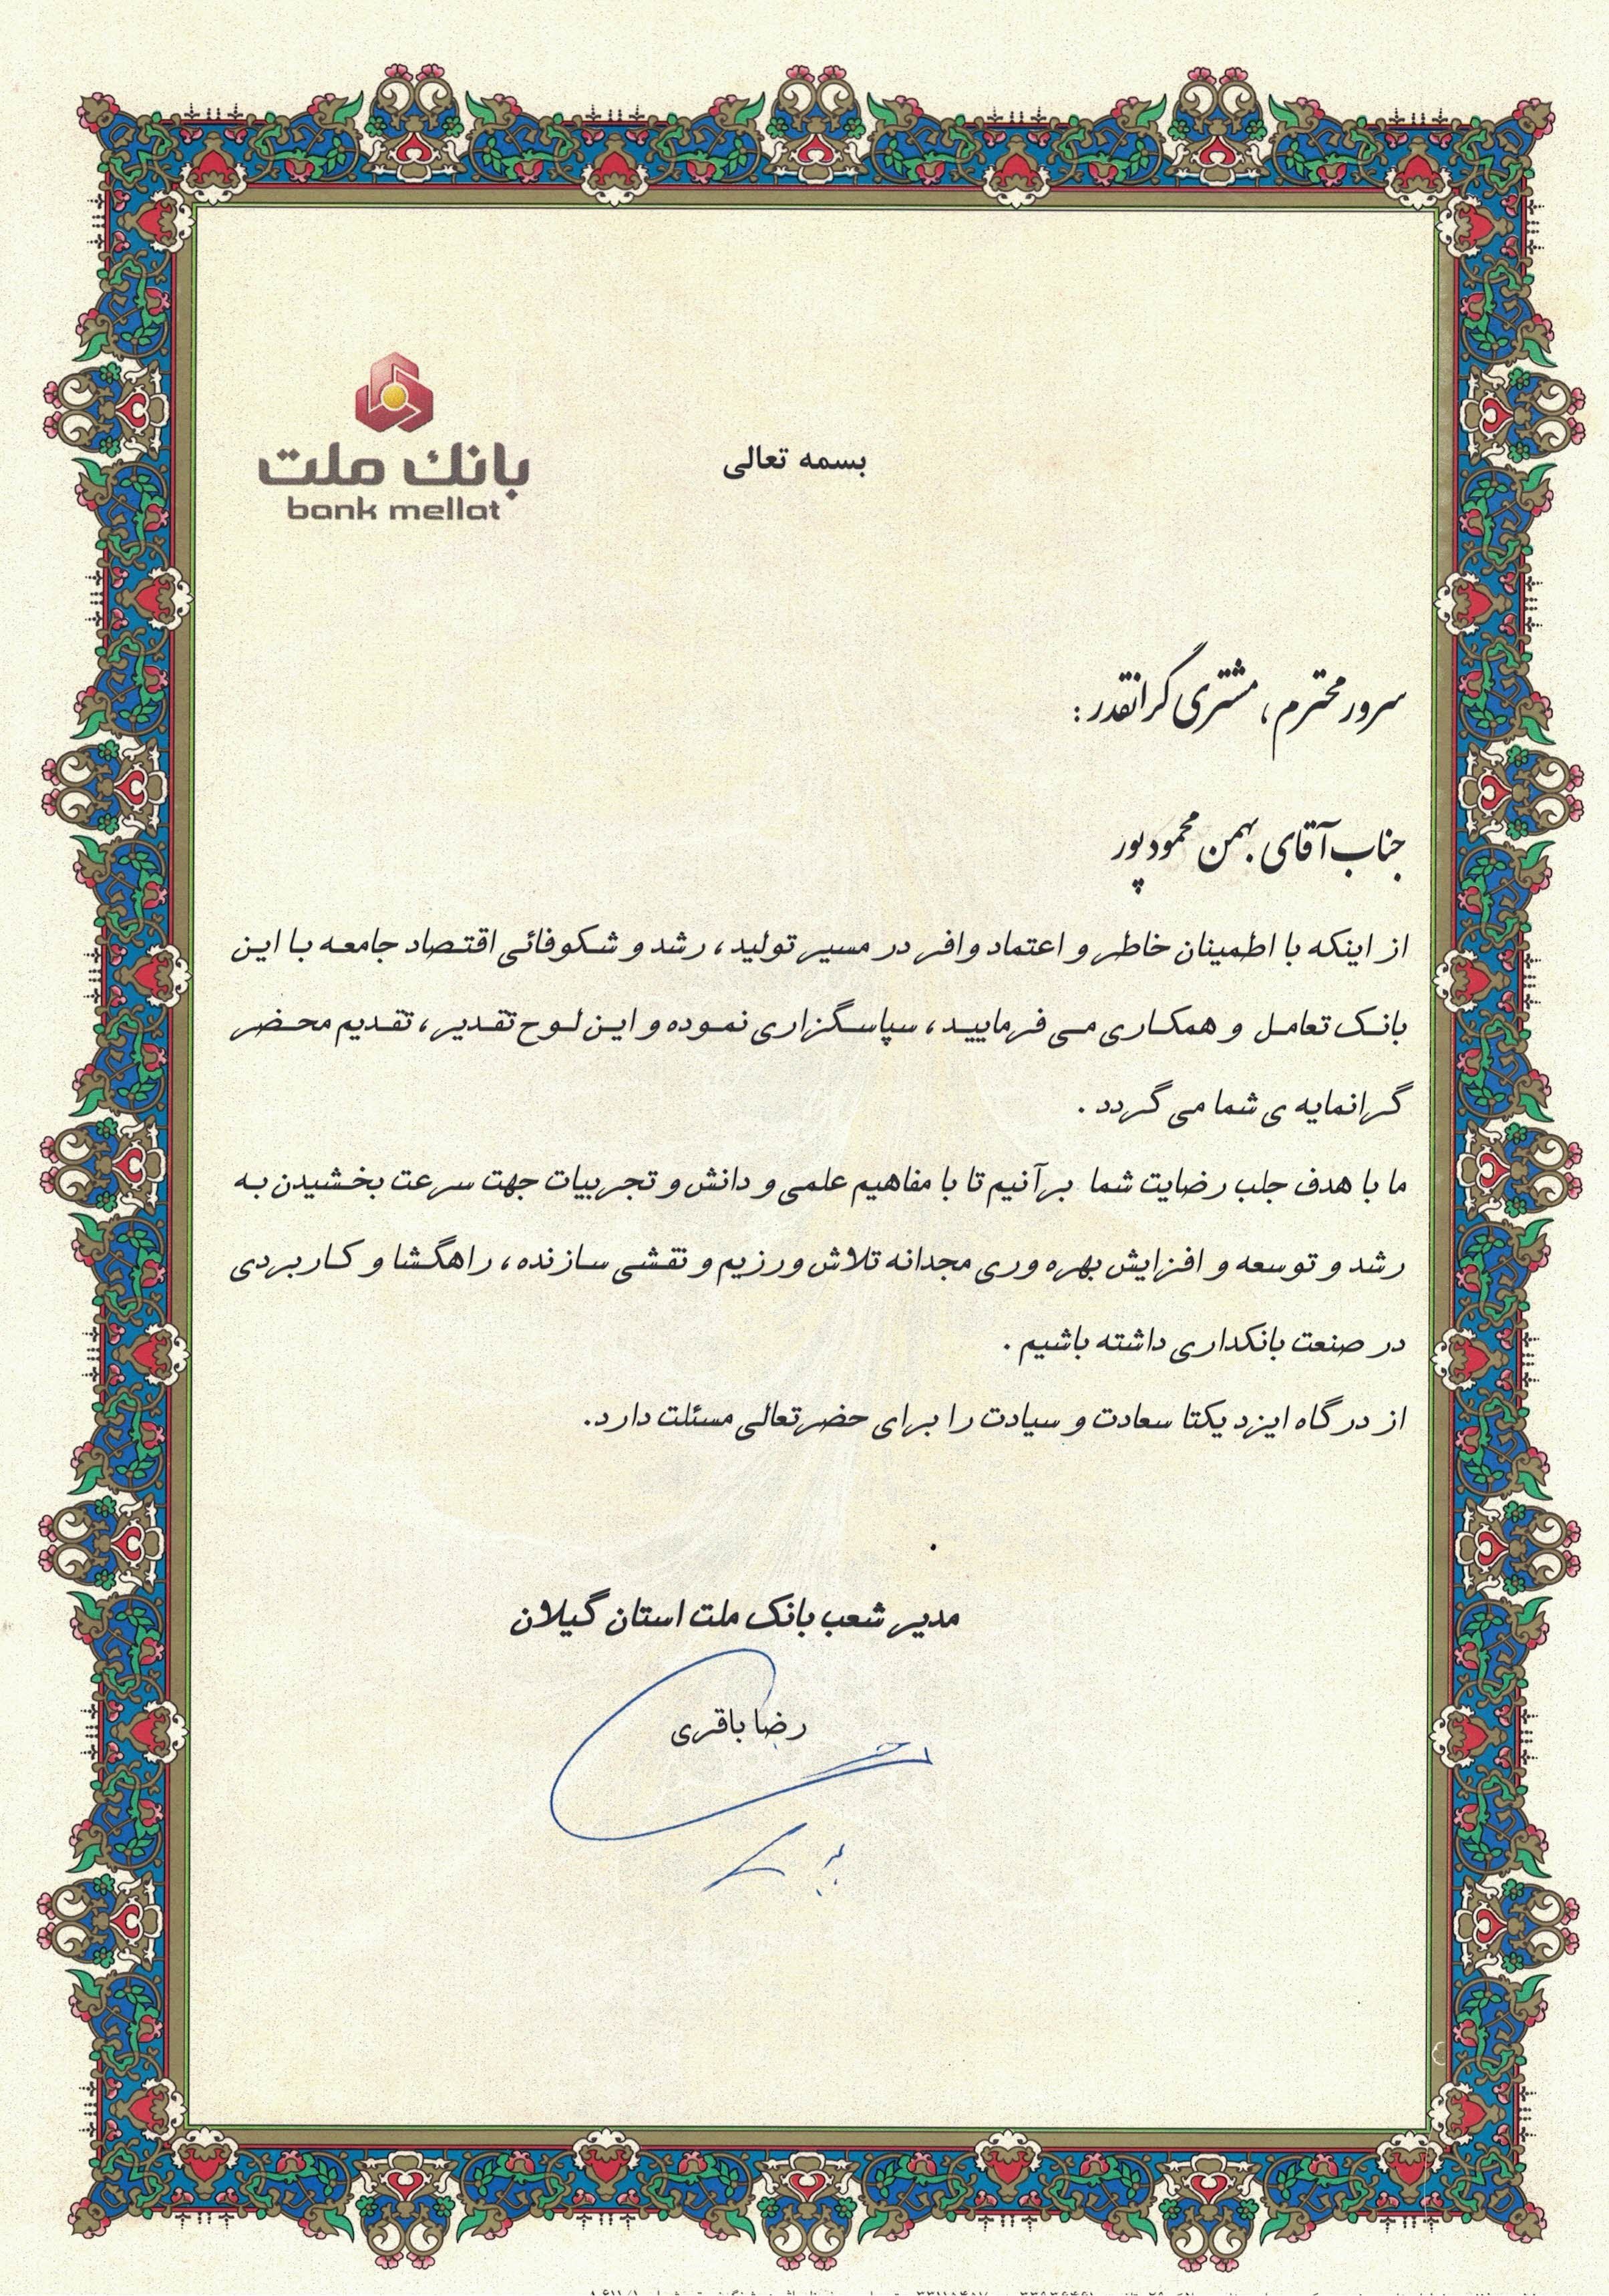 بانک ملت
bank mellat
بسمه تعالی
سرور محترم، مشتری گرانقدر:
جناب آقای بهمن محمودپور
از اینکه با اطمینان خاطر و اعتماد وافر در مسیر تولید، رشد و شکوفائی اقتصاد جامعه با این
بانک تعامل و همکاری می فرمایید، سپاسگزاری نموده و این لوح تقدیر، تقدیم محضر
گرانمایه ی شما می گردد.
ما با هدف جلب رضایت شما برآنیم تا با مفاهیم علمی و دانش و تجربیات جهت سرعت بخشیدن به
رشد و توسعه و افزایش بهره وری مجدانه تلاش ورزیم و نقشی سازنده، راهگشا و کاربردی
در صنعت بانکداری داشته باشیم.
از درگاه ایزد یکتا سعادت و سیادت را برای حضرتعالی مسئلت دارد.
مدیر شعب بانک ملت استان گیلان
رضا باقری